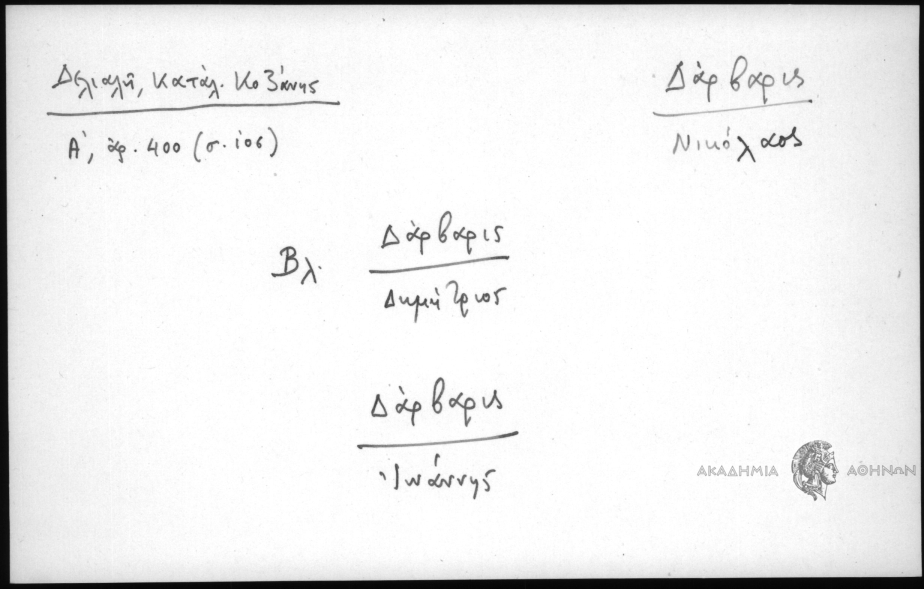 Δελιαλῆ, Κατάλ. Κοζάνης
Α', ἀρ. 400 (σ. 106)
Δάρβαρις
Νικόλαος
Βλ. Δάρβαρις
Δημήτριος
Δάρβαρις
Ἰωάννης
ΑΚΑΔΗΜΙΑ ΑΘΗΝΩΝ